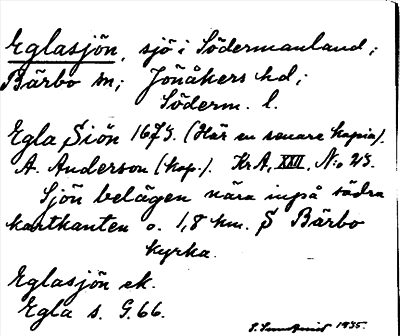 Eglasjön, sjö i Södermanland;
Bärbo sn; Jönåkers hd;
Söderm. l.
Egla Siön 1673. (Här en senare kopia).
A. Anderson (kop.). Kr A, XXII, No 23.
Sjön belägen nära inpå södra
kartkanten o. 1,8 km. S Bärbo
kyrka.
Eglasjön ek.
Egla s. G.66.
1935.